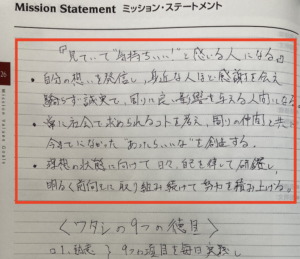 Mission Statement ミッション・ステートメント
『見ていて"気持ちいい!"と感じる人になる』
・自分の想いを発信し、身近な人ほど感謝を伝え
驕らず誠実で、周りに良い影響を与える人間になる
・常に社会で求められるコトを考え、周りの仲間と共に
今までになかった"あったらいいな"を創造する。
・理想の状態に向けて日々、自己を律して研鑽し、
明るく前向きに取り組み続けて努力を積み上げる。
26
Mission Values Goals
<ワタシの9つの徳目>
9つの項目を毎日実践し